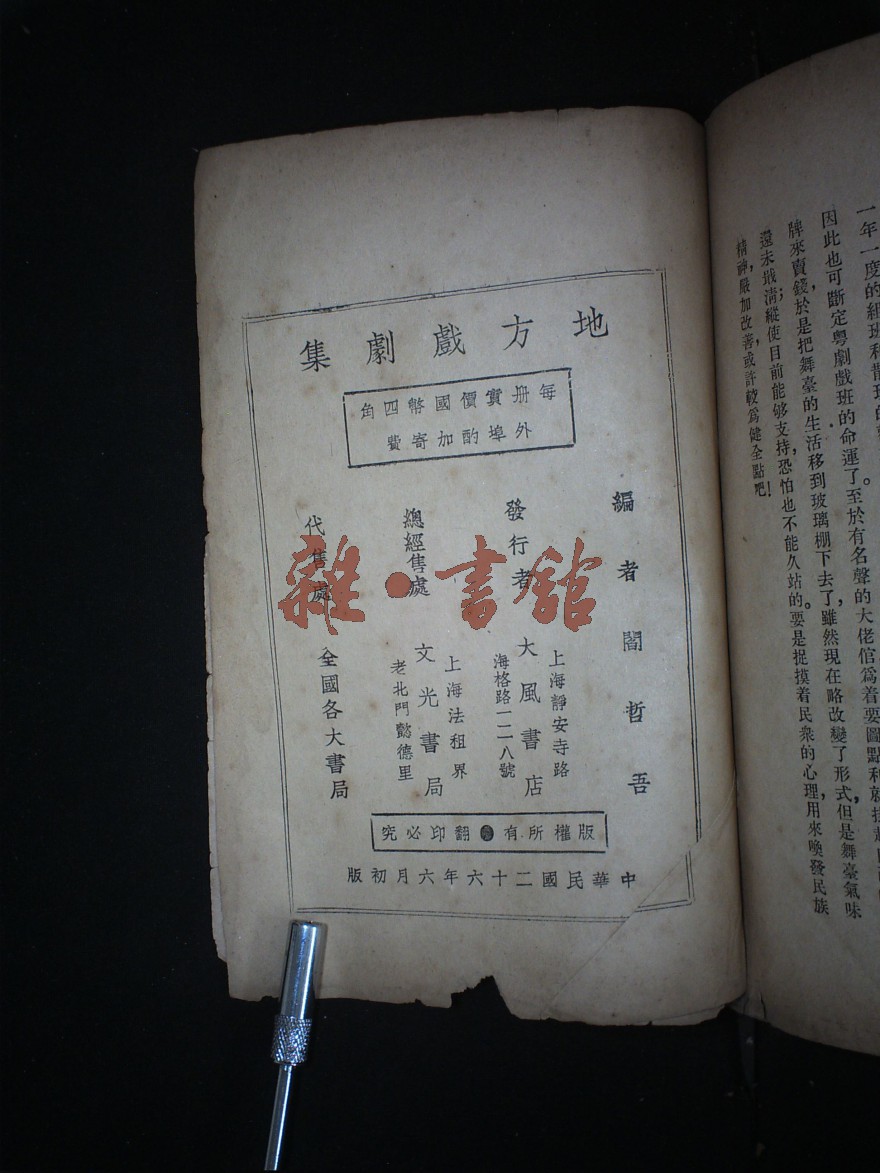 一年一度的組班和散班的
因此也可斷定粤劇戲班的命運了。至於有名聲的大佬倌爲着要圖點利就
牌來賣錢，於是把舞臺的生活移到玻璃棚下去了，雖然現在略改變了形式但是舞臺氣味
還未戕淸；縱使目前能够支持，恐怕也不能久站的。要是捉摸着民衆的心理用來喚發民族
精神，嚴加改善，或許較爲健全點吧！
地方戲劇集
每册實價國幣四角
外埠酌加寄費
編者 閻哲吾
發行者 大風書店
上海靜安寺路
海格路一二八號
總經售處 文光書局
上海法租界
老北門懿德里
代售處 全國各大書局
版權所有 翻印必究
中華民國二十六年六月初版
雜·書館